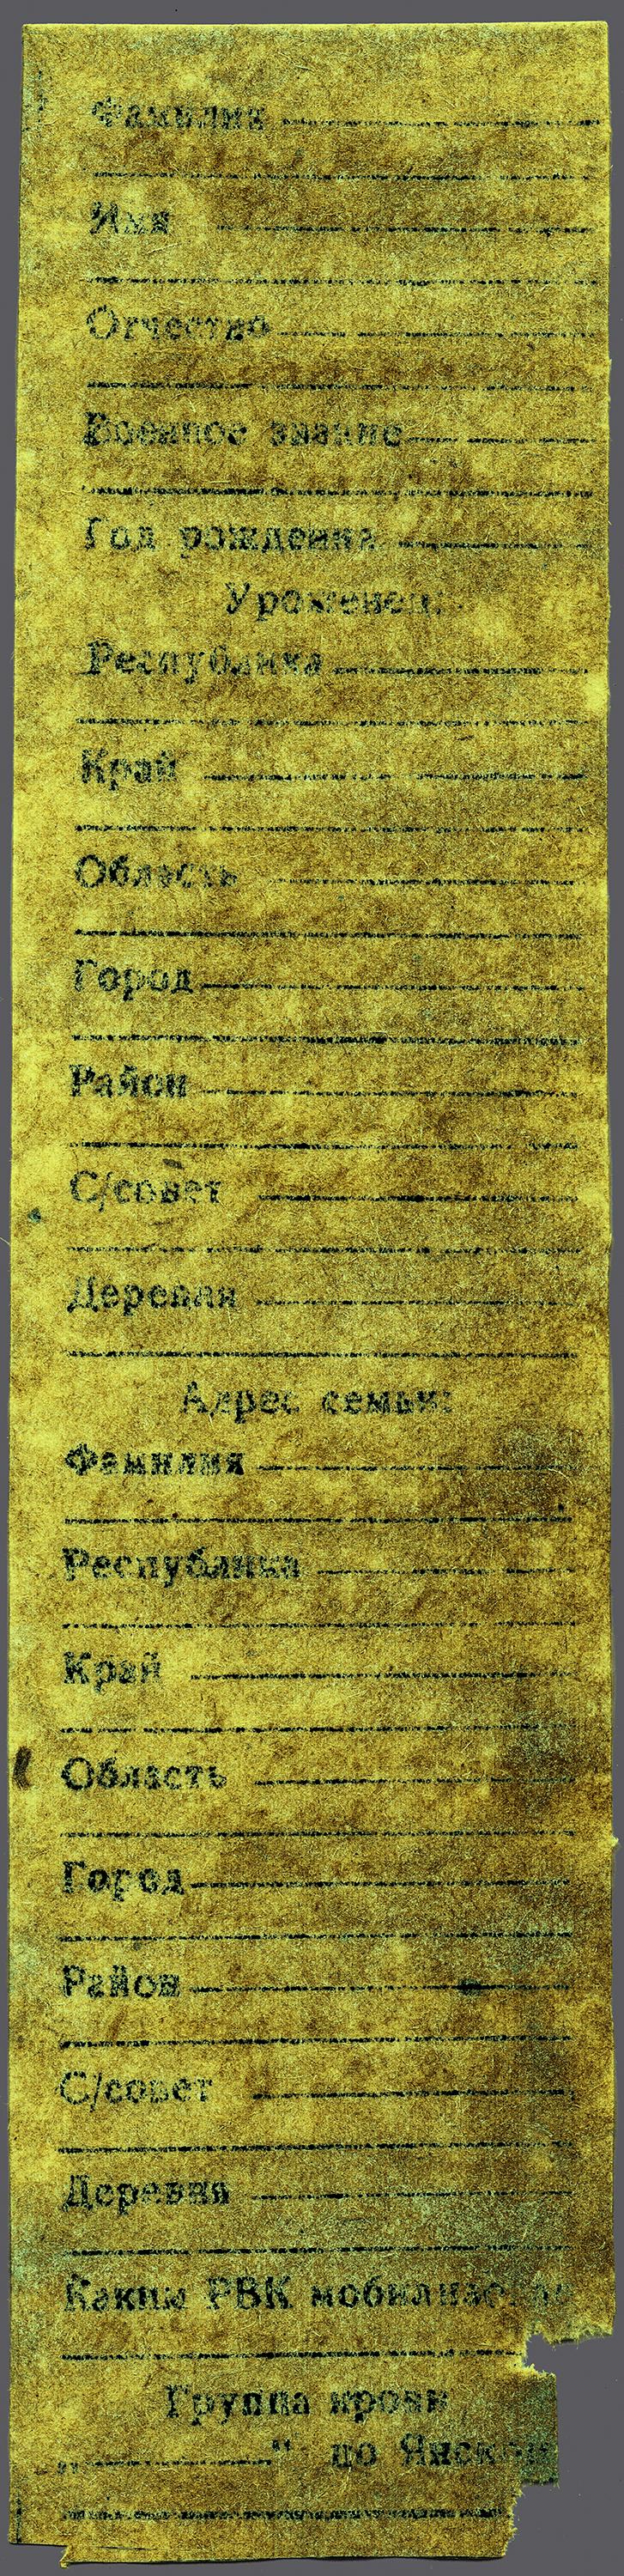 Фамилия
Имя
Отчество
Военное звание
Год рождения
Уроженец:
Республика
Край
Область
Город
Район
С/совет
Деревня
Адрес семьи:
Фамилия
Республика
Край
Область
Город
Район
С/совет
Деревня
Каким РВК мобилизован
Группа крови
„ " по Янском